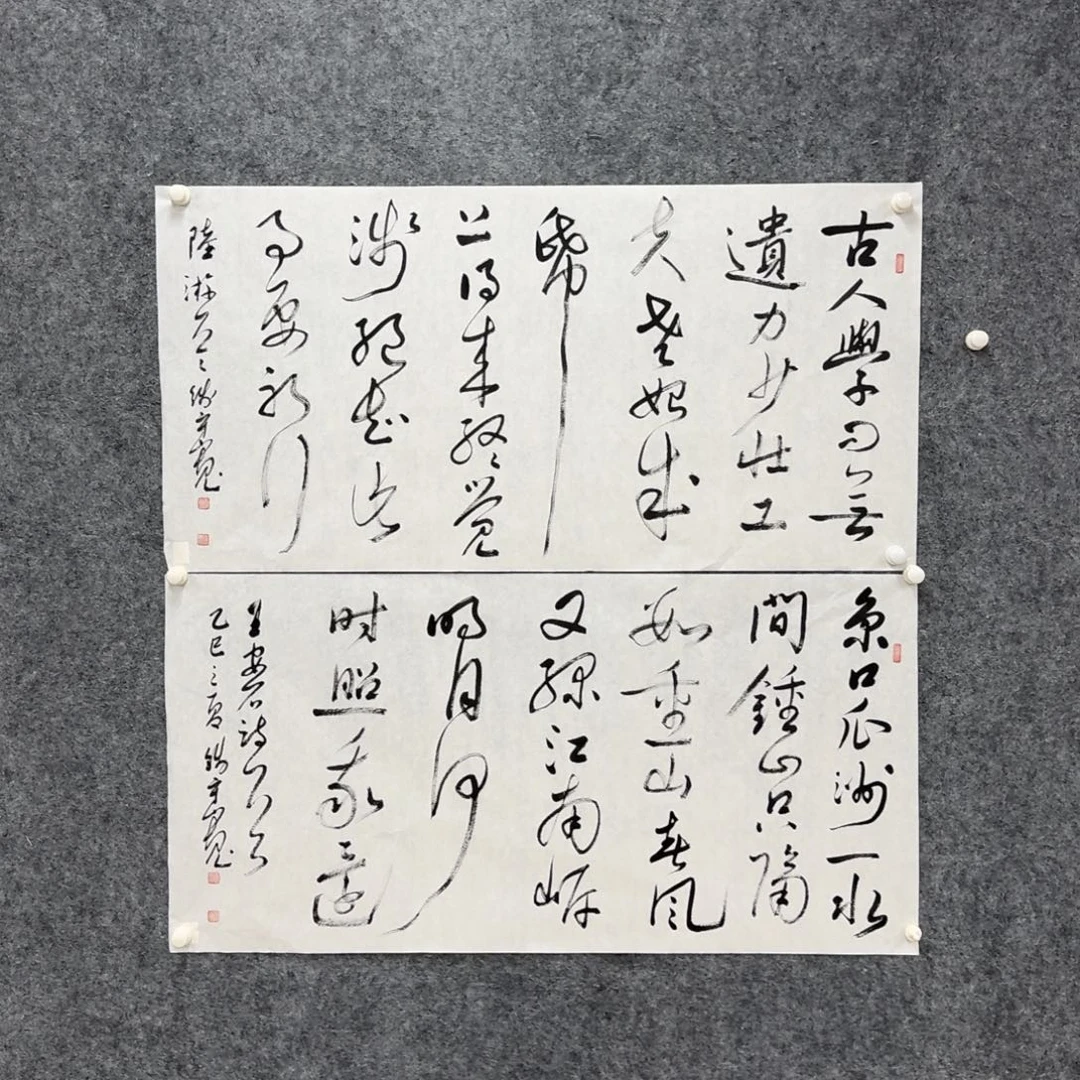 古人學問無
遺力少壯工
夫老始成
帋
上得来終覺
淺絕知此
事要躬行
陸游
京口瓜洲一水
間鍾山只隔
数重山春風
又綠江南岸
明月何
时照我還
王安石詩
乙巳之夏